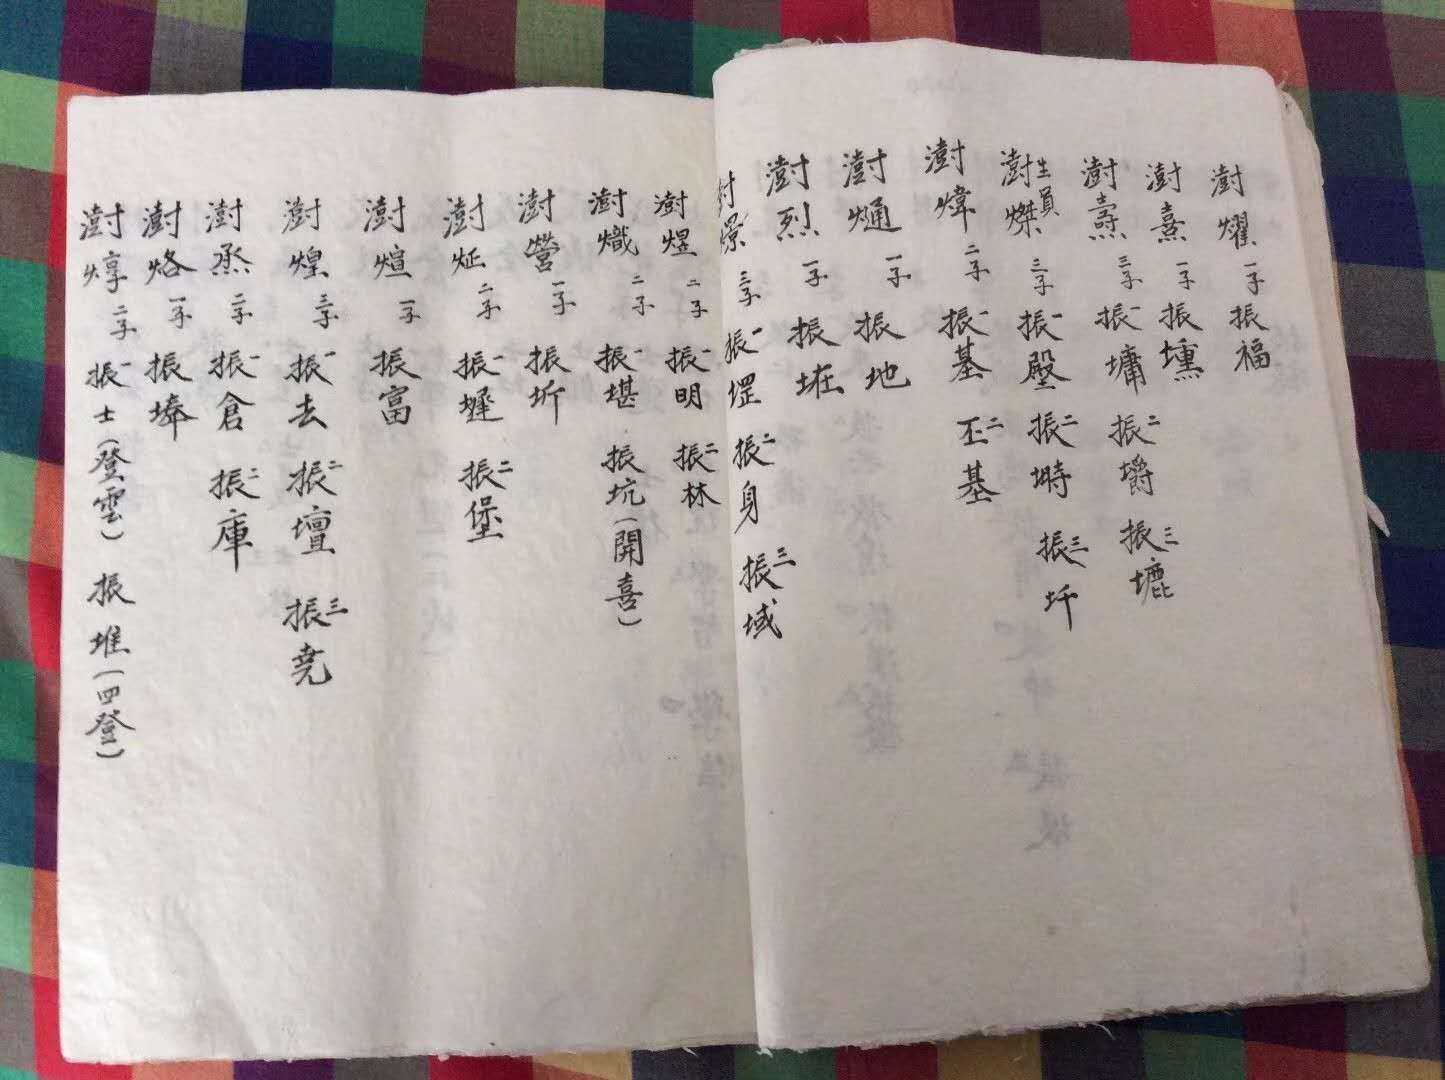 澍耀 一子 振福
澍熹 一子 振壎
澍燾 三子 振一墉 振二壝 振三墟
澍生員燦 三子 振一壂 振二塒 振三圲
澍煒 二子 振一基 二丕基
澍熥 一子 振地
澍烈 一子 振垤
澍燝 三子 振一堽 振二身 振三域
澍煜 二子 振一明 振二林
澍熾 二子 振一堪 振坑(開喜)
澍營 一子 振圻
澍烻 二子 振一墀 振二堡
澍煊 一子 振富
澍煌 三子 振一去 振二壇 振三堯
澍烝 二子 振一倉 振二庫
澍烙 一子 振埲
澍焞 二子 振一士(登雲) 振堆(四登)